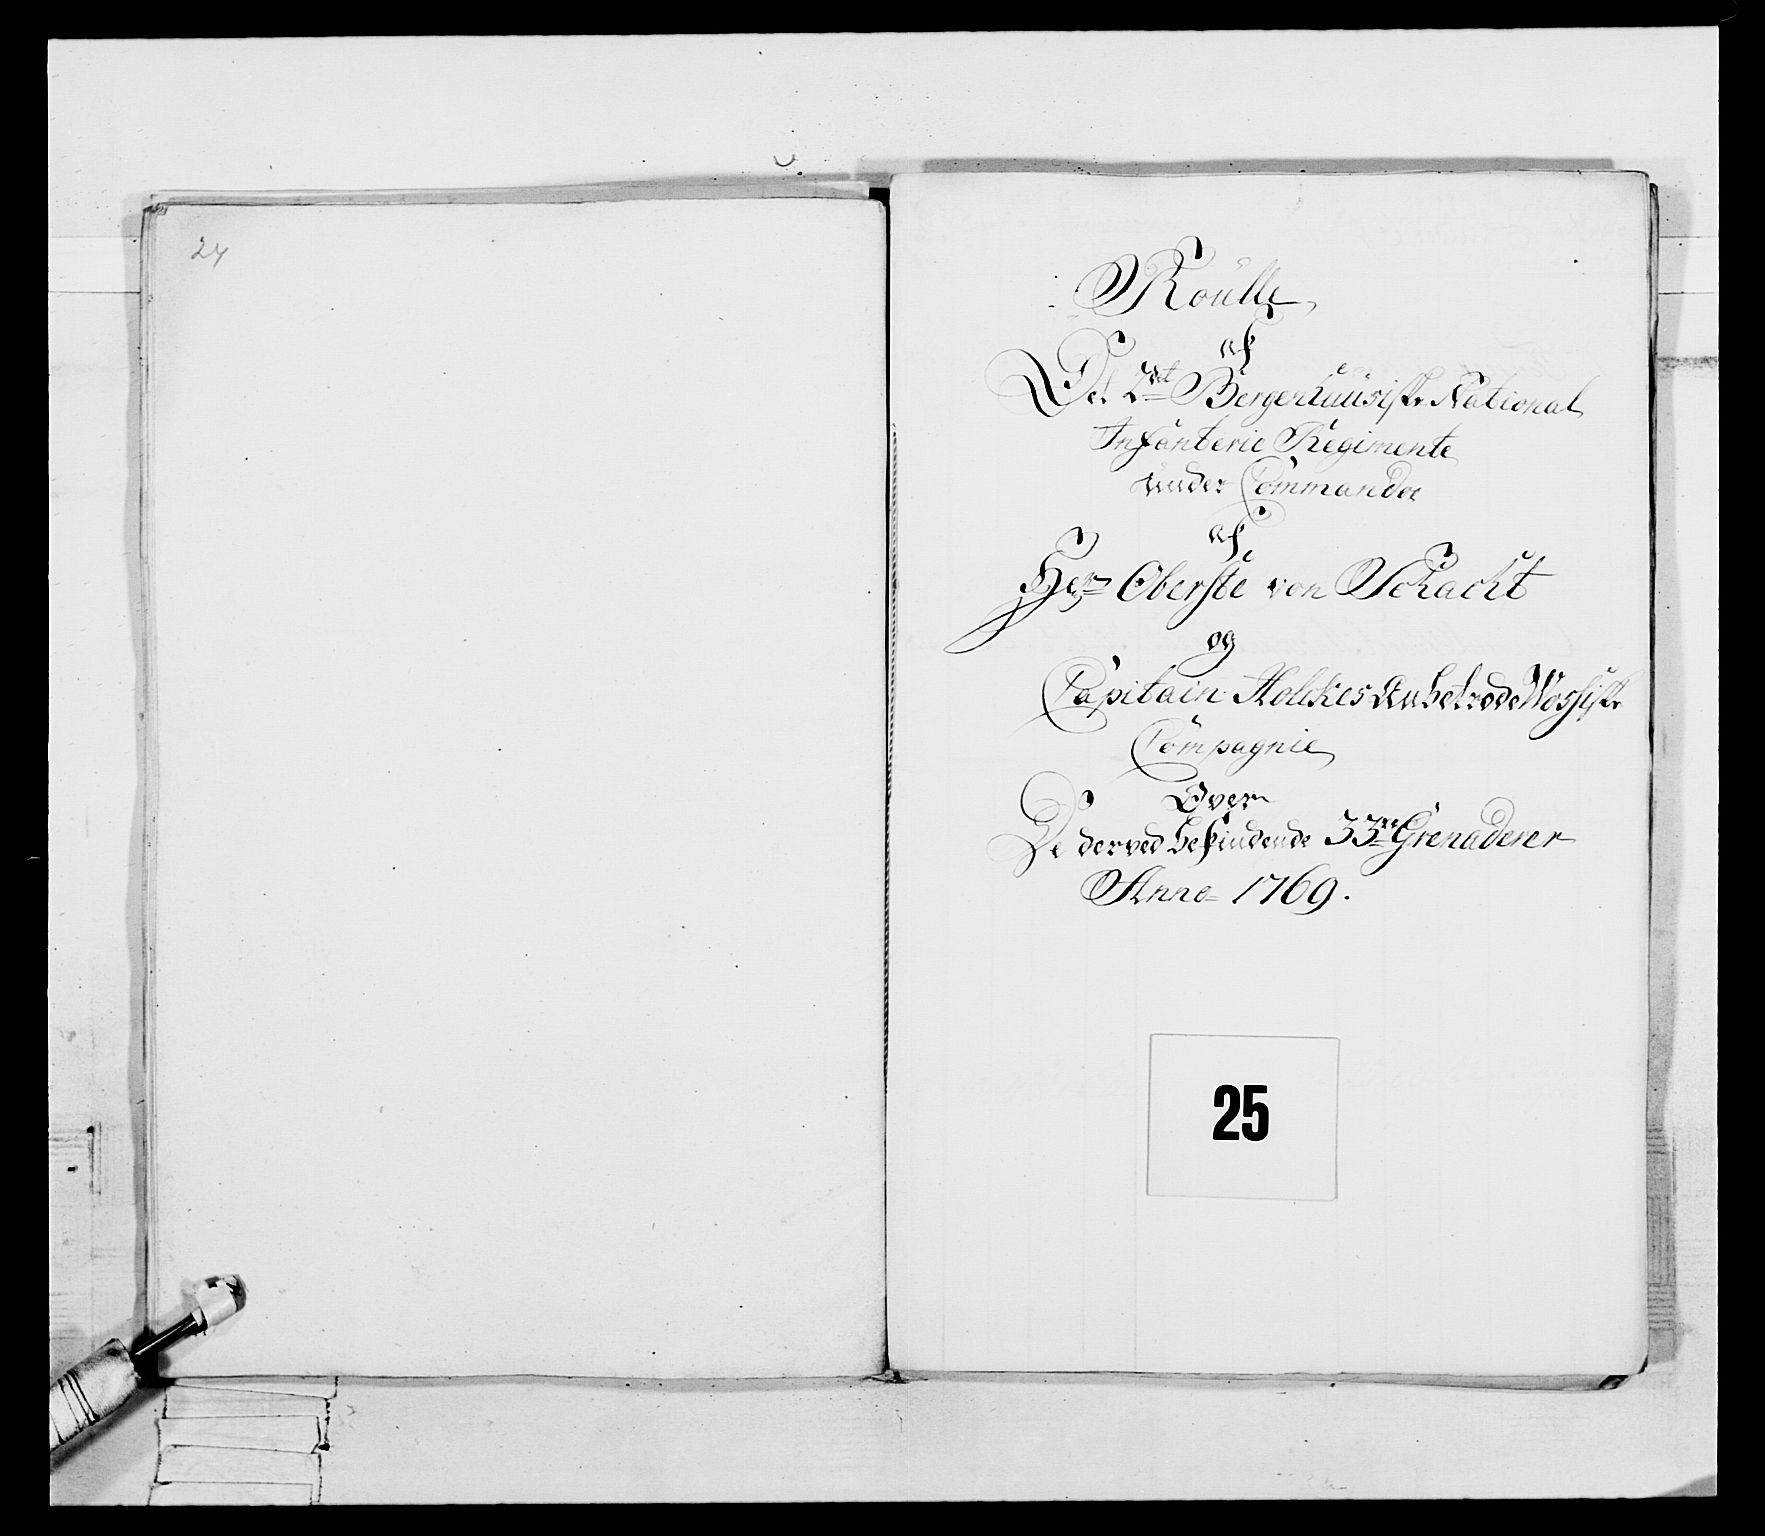 24
Roulle
af
Det 2det Bergenhuusiske National
Infanterie Regimente
under Commandoe
af
Herr Oberste von Schacht
og
Capitain Holckes Anbetroede Wossiske
Compagnie
Over
De derved befindende 33re Grenaderer
Anno 1769.
25